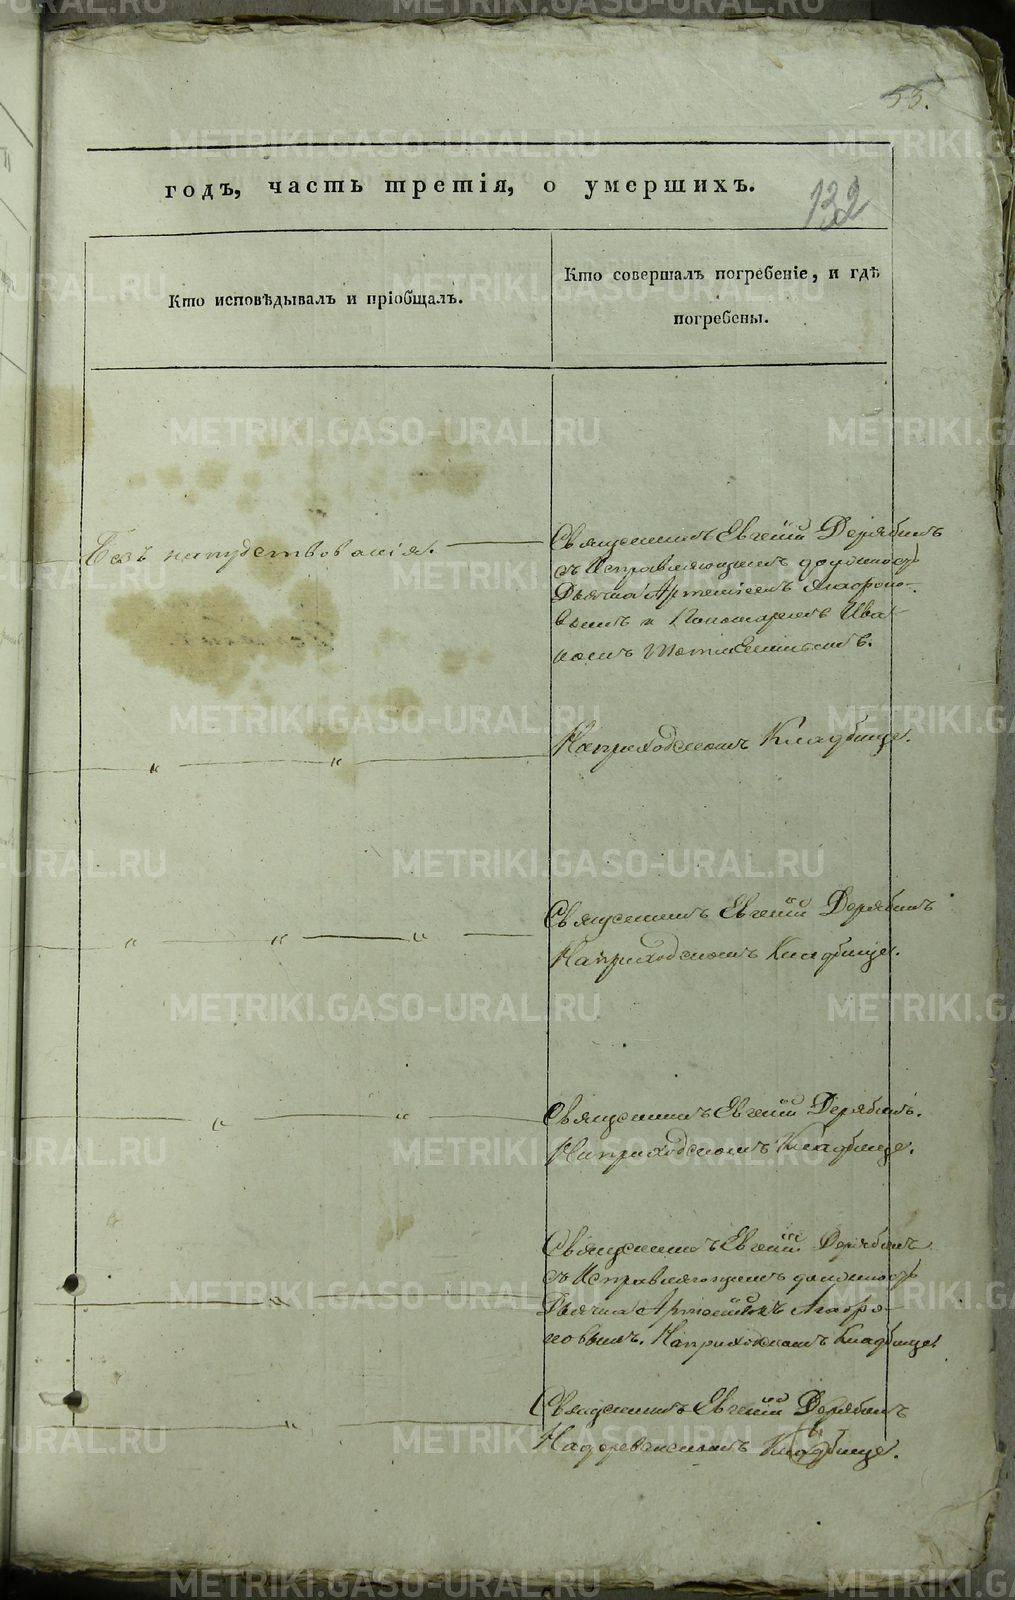 53.
годъ, часть третія, о умершихъ.
132
Кто исповѣдывалъ и пріобщалъ.
Кто совершалъ погребеніе, и гдѣ
погребены.
Безъ напудствованія.
Священникъ Евгеній Дерябинъ
съ Исправляющимъ должность
Дьячка Артеміемъ
вымъ и Пономаремъ Ива-
номъ
На приходскомъ Кладбище.
Священникъ Евгеній Дерябинъ
На приходскомъ Кладбище.
Священникъ Евгеній Дерябинъ.
На приходскомъ Кладбище.
Священникъ Евгеній Дерябинъ
съ Исправляющимъ должность
Дьячка Артеміемъ
новымъ. На приходскомъ Кладбище.
Священникъ Евгеній Дерябинъ
На деревенскомъ Кладбище.
METRIKI.GASO-URAL.RU